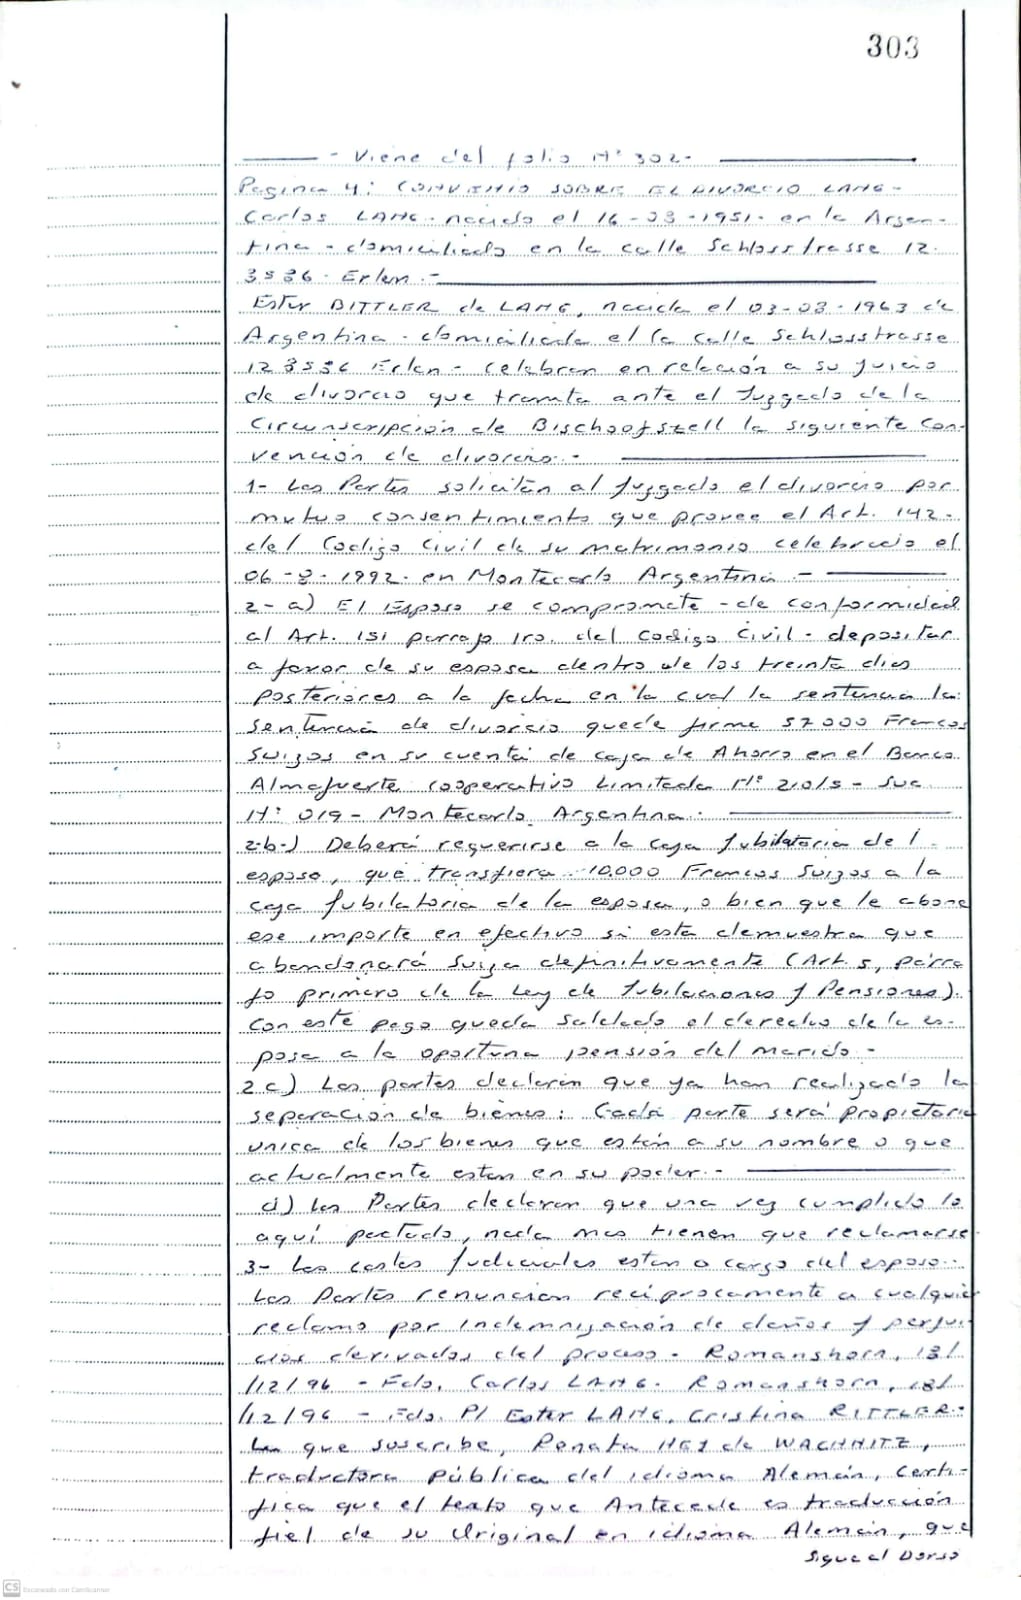 303
- Viene del folio N° 302-
Pagina 4: CONVENIO SOBRE EL DIVORCIO LANG-
Carlos LANG- nacido el 16-03-1951- en la Argen-
tina - domiciliado en la calle Schlosstrasse 12.
3586- Erlen.-
Ester BITTLER de LANG, nacida el 03-03-1963 de
Argentina - domiciliada el la calle Schlosstrasse
12 3586 Erlen - celebran en relación a su juicio
de divorcio que tramita ante el Juzgado de la
Circunscripción de Bischoofszell la siguiente con-
vención de divorcio.-
1- Las Partes solicitan al Juzgado el divorcio por
mutuo consentimiento que provee el Art. 142-
del Codigo Civil de su matrimonio celebrado el
06-8-1992- en Montecarlo Argentina -
2- a) El Esposo se compromete - de conformidad
al Art. 151 parrafo 1ro. del Codigo Civil - depositar
a favor de su esposa dentro de los treinta dias
posteriores a la fecha en la cual la sentencia la
sentencia de divorcio quede firme 57000 Francos
Suizos en su cuenta de caja de Ahorro en el Banco
Almafuerte cooperativo Limitada N° 210/5 - Suc.
N° 019 - Montecarlo Argentina.-
2-b-) Deberá requerirse a la Caja Jubilatoria del
esposo, que transfiera 10.000 Francos Suizos a la
caja Jubilatoria de la esposa, o bien que le abone
ese importe en efectivo si esta demuestra que
abandonará Suiza definitivamente (Art. 5, párra
fo primero de la Ley de Jubilaciones y Pensiones).
Con este pago queda saldado el derecho de la es-
posa a la oportuna pensión del marido -
2 c) Las partes declaran que ya han realizado la
separación de bienes: Cada parte será propietaria
unica de los bienes que están a su nombre o que
actualmente estan en su poder.-
d) Las Partes declaran que una vez cumplido lo
aquí pactado, nada mas tienen que reclamarse
3- Las costas Judiciales estan a cargo del esposo.
Las Partes renuncian recíprocamente a cualquier
reclamo por indemnización de daños y perjui-
cios derivados del proceso - Romanshorn, 18/
/12/96 - Fdo. Carlos LANG. Romanshorn, 18/
/12/96 - Fdo. P/ Ester LANG, Cristina RITTLER-
La que suscribe, Renata HEY de WACHNITZ,
traductora Pública del idioma Alemán, certi-
fica que el texto que Antecede es traducción
fiel de su Original en idioma Alemán, que
Sigue al Dorso
CS Escaneado con CamScanner